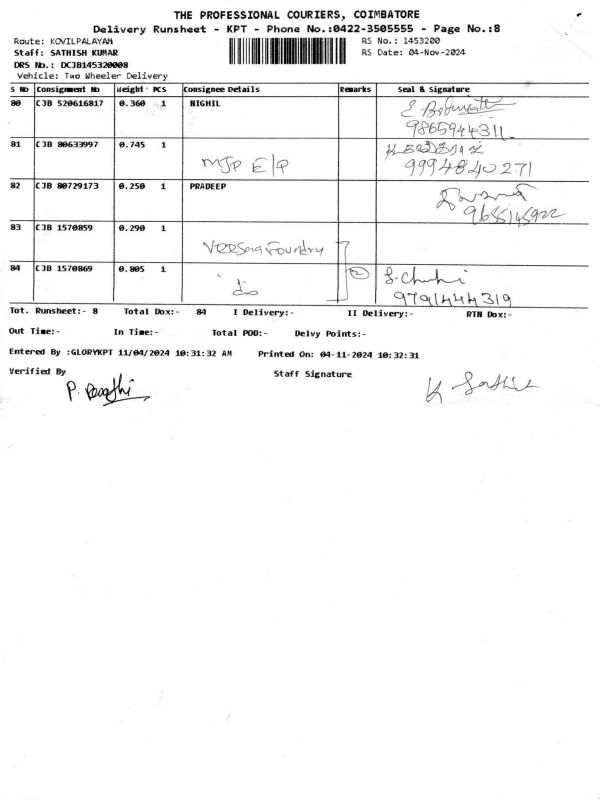 THE PROFESSIONAL COURIERS, COIMBATORE
Delivery Runsheet - KPT - Phone No.:0422-3505555 - Page No.:8
Route: KOVILPALAYAM RS No.: 1453200
Staff: SATHISH KUMAR RS Date: 04-Nov-2024
DRS No.: DCJB145320008
Vehicle: Two Wheeler Delivery
S No Consignment No Weight PCS Consignee Details Remarks Seal & Signature
80 CJB 520616817 0.360 1 NIGHIL
9865944311
81 CJB 80633997 0.745 1
MJP E/P 9994840271
82 CJB 80729173 0.250 1 PRADEEP
9655145922
83 CJB 1570859 0.290 1
Veesaa Foundry
84 CJB 1570869 0.805 1 2
do 9791444319
Tot. Runsheet:- 8 Total Dox:- 84 I Delivery:- II Delivery:- RTN Dox:-
Out Time:- In Time:- Total POD:- Delvy Points:-
Entered By :GLORYKPT 11/04/2024 10:31:32 AM Printed On: 04-11-2024 10:32:31
Verified By Staff Signature